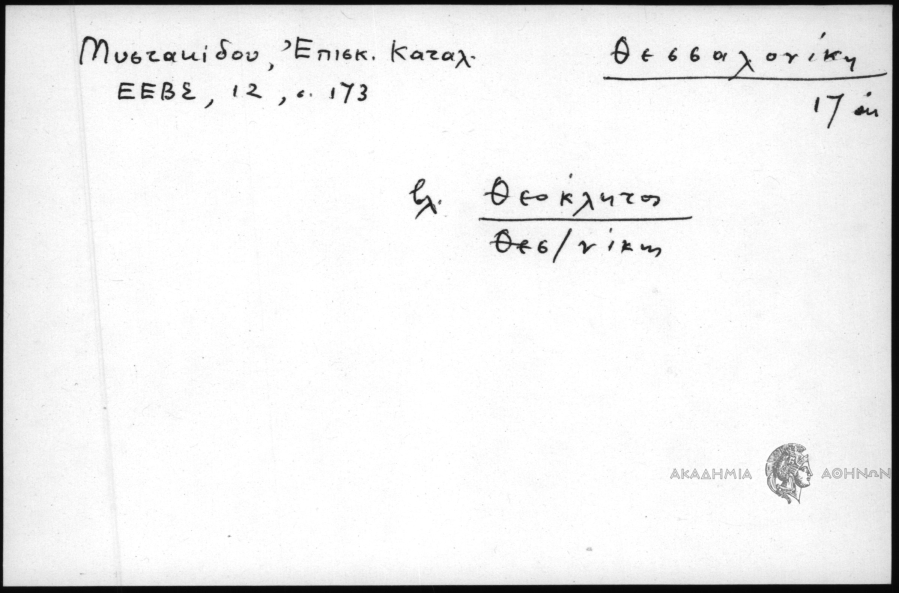 Μυστακίδου, Ἐπισκ. Καταλ.
ΕΕΒΣ, 12, σ. 173
Θεσσαλονίκη
17 ἐκ
βλ. Θεόκλητος
Θεσ/νίκης
ΑΚΑΔΗΜΙΑ ΑΘΗΝΩΝ